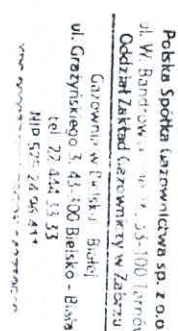 Polska Spółka Gazownictwa sp. z o.o
ul. W. Bandrowskiego 33-100 Tarnów
Oddział Zakład Gazowniczy w Zabrzu
Gazownia w Bielsku - Białej
ul. Grażyńskiego 3, 43-300 Bielsko - Biała
tel. 22 444 33 33
NIP 525 24 96 411